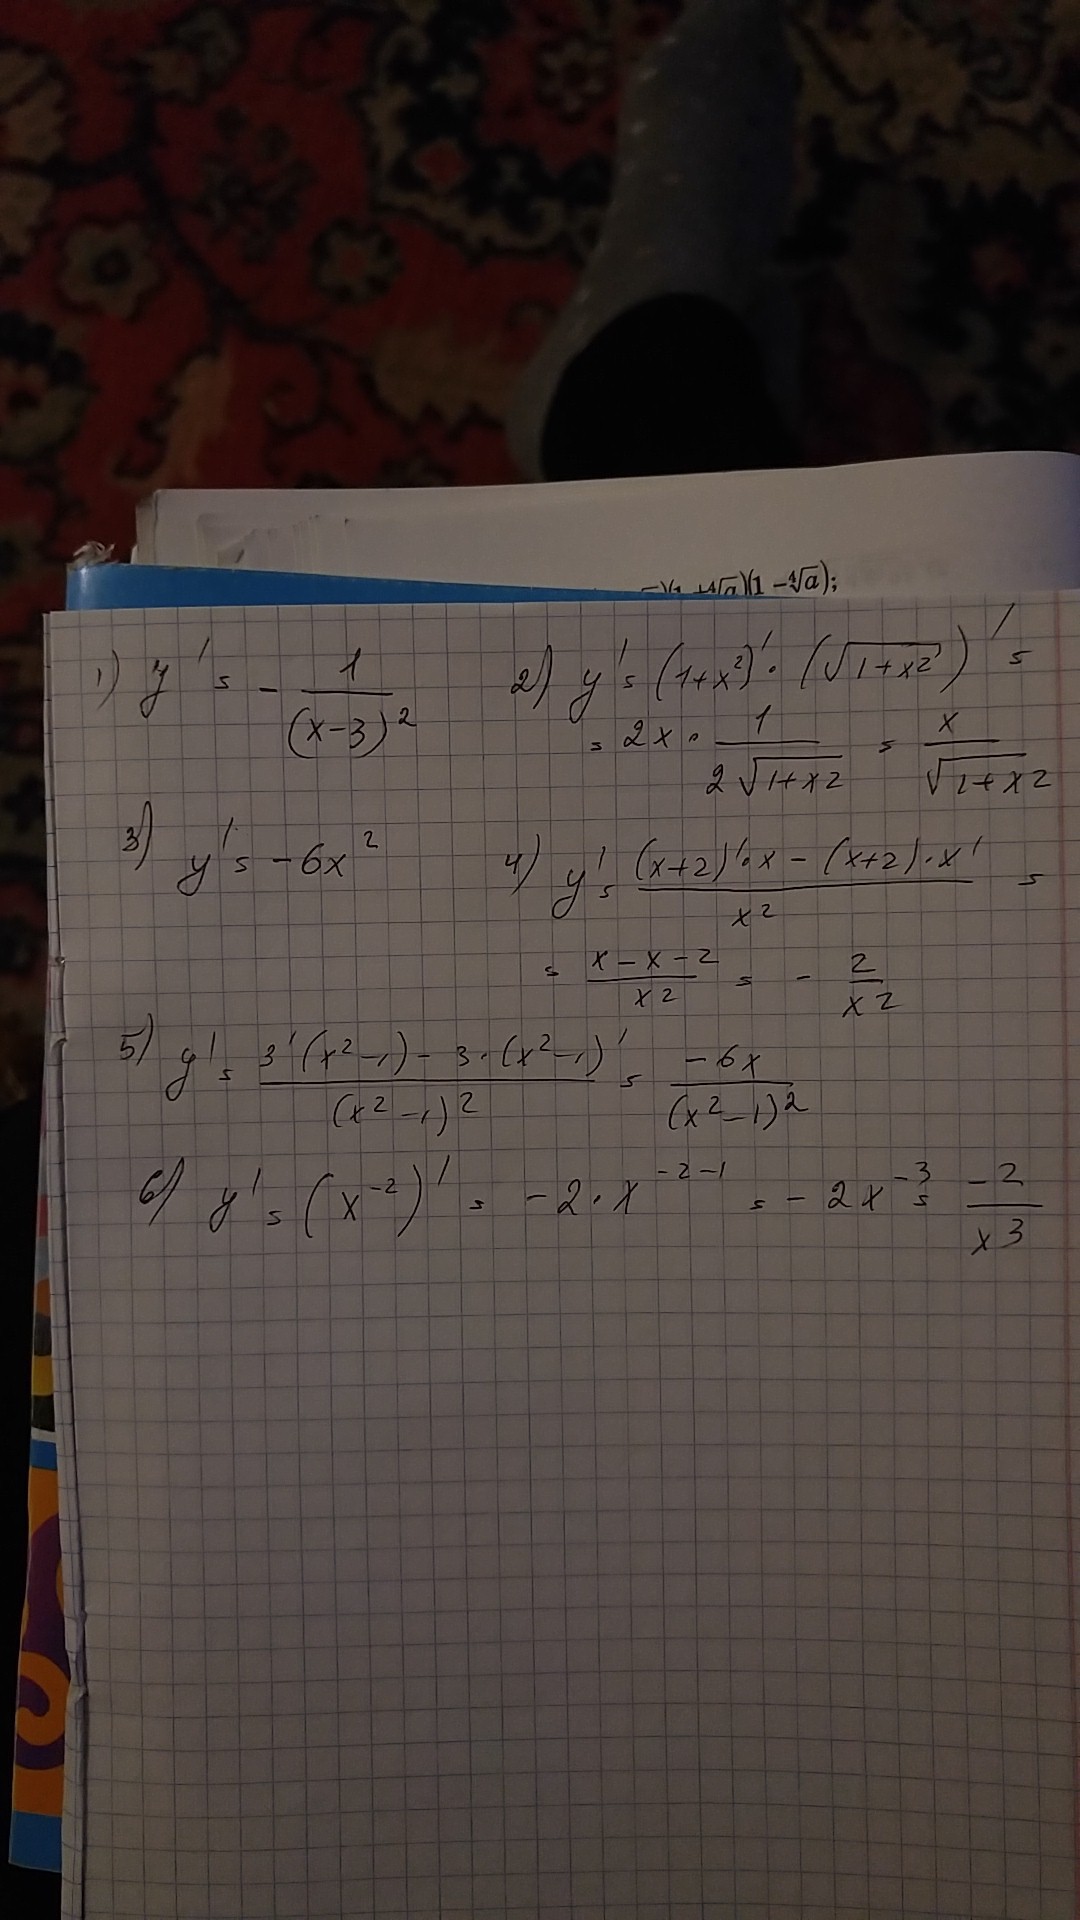 ⁴√a)(1 - ⁴√a);
1) y' = - 1/(x-3)²
2) y' = (1+x²)' · (√(1+x²))' =
= 2x · 1/(2√(1+x²)) = x/√(1+x²)
3) y' = -6x²
4) y' = ((x+2)'·x - (x+2)·x')/x² =
= (x-x-2)/x² = - 2/x²
5) y' = (3'(x²-1) - 3·(x²-1)')/(x²-1)² = -6x/(x²-1)²
6) y' = (x⁻²)' = -2·x⁻²⁻¹ = -2x⁻³ = -2/x³